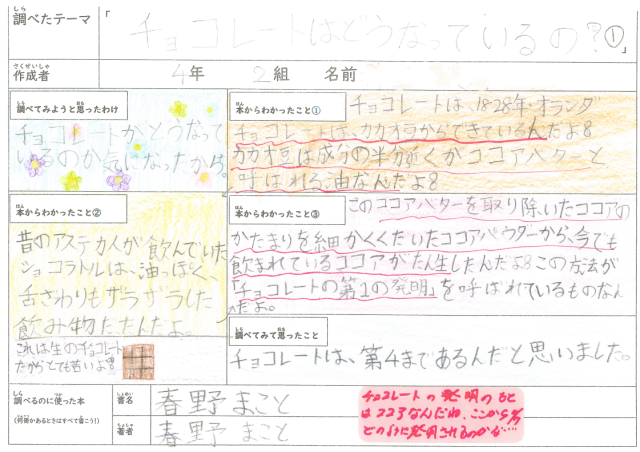 調べたテーマ 「チョコレートはどうなっているの?①」
作成者 4年 2組 名前
調べてみようと思ったわけ
チョコレートがどうなって
いるのか気になったから。
本からわかったこと①
チョコレートは、1828年・オランダ
チョコレートは、カカオ豆からできているんだよ。
カカオ豆は成分の半分
ココアバターと
呼ばれる油なんだよ。
本からわかったこと②
昔のアステカ人が飲んでいた
ショコラトルは、油っぽく
舌ざわりもザラザラした
飲み物だったんだよ。
これは生のチョコレート
だからとても苦いよ
本からわかったこと③
このココアバターを取り除いたココアの
かたまりを細かくくだいたココアパウダーから、今でも
飲まれているココアがたん生したんだよ。この方法が
「チョコレートの第1の発明」を呼ばれているものなん
だよ。
調べてみて思ったこと
チョコレートは、第4まであるんだと思いました。
調べるのに使った本
(何冊かあるときはすべて書こう!)
書名 春野 まこと
著者 春野 まこと
チョコレートの発明のもと
はココアなんだね、ここから
発明されるのかな…